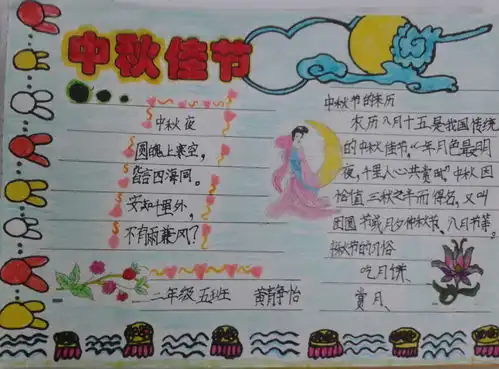 中秋佳节
中秋夜
圆魄上寒空，
皆言四海同。
安知千里外，
不有雨兼风？
二年级五班 黄静怡
中秋节的来历
农历八月十五是我国传统
的中秋佳节，"一年月色最明
夜，千里人心共赏时"中秋因
恰值三秋之半而得名，又叫
团圆节或月夕仲秋节、八月节等。
中秋节的习俗
吃月饼、
赏月、